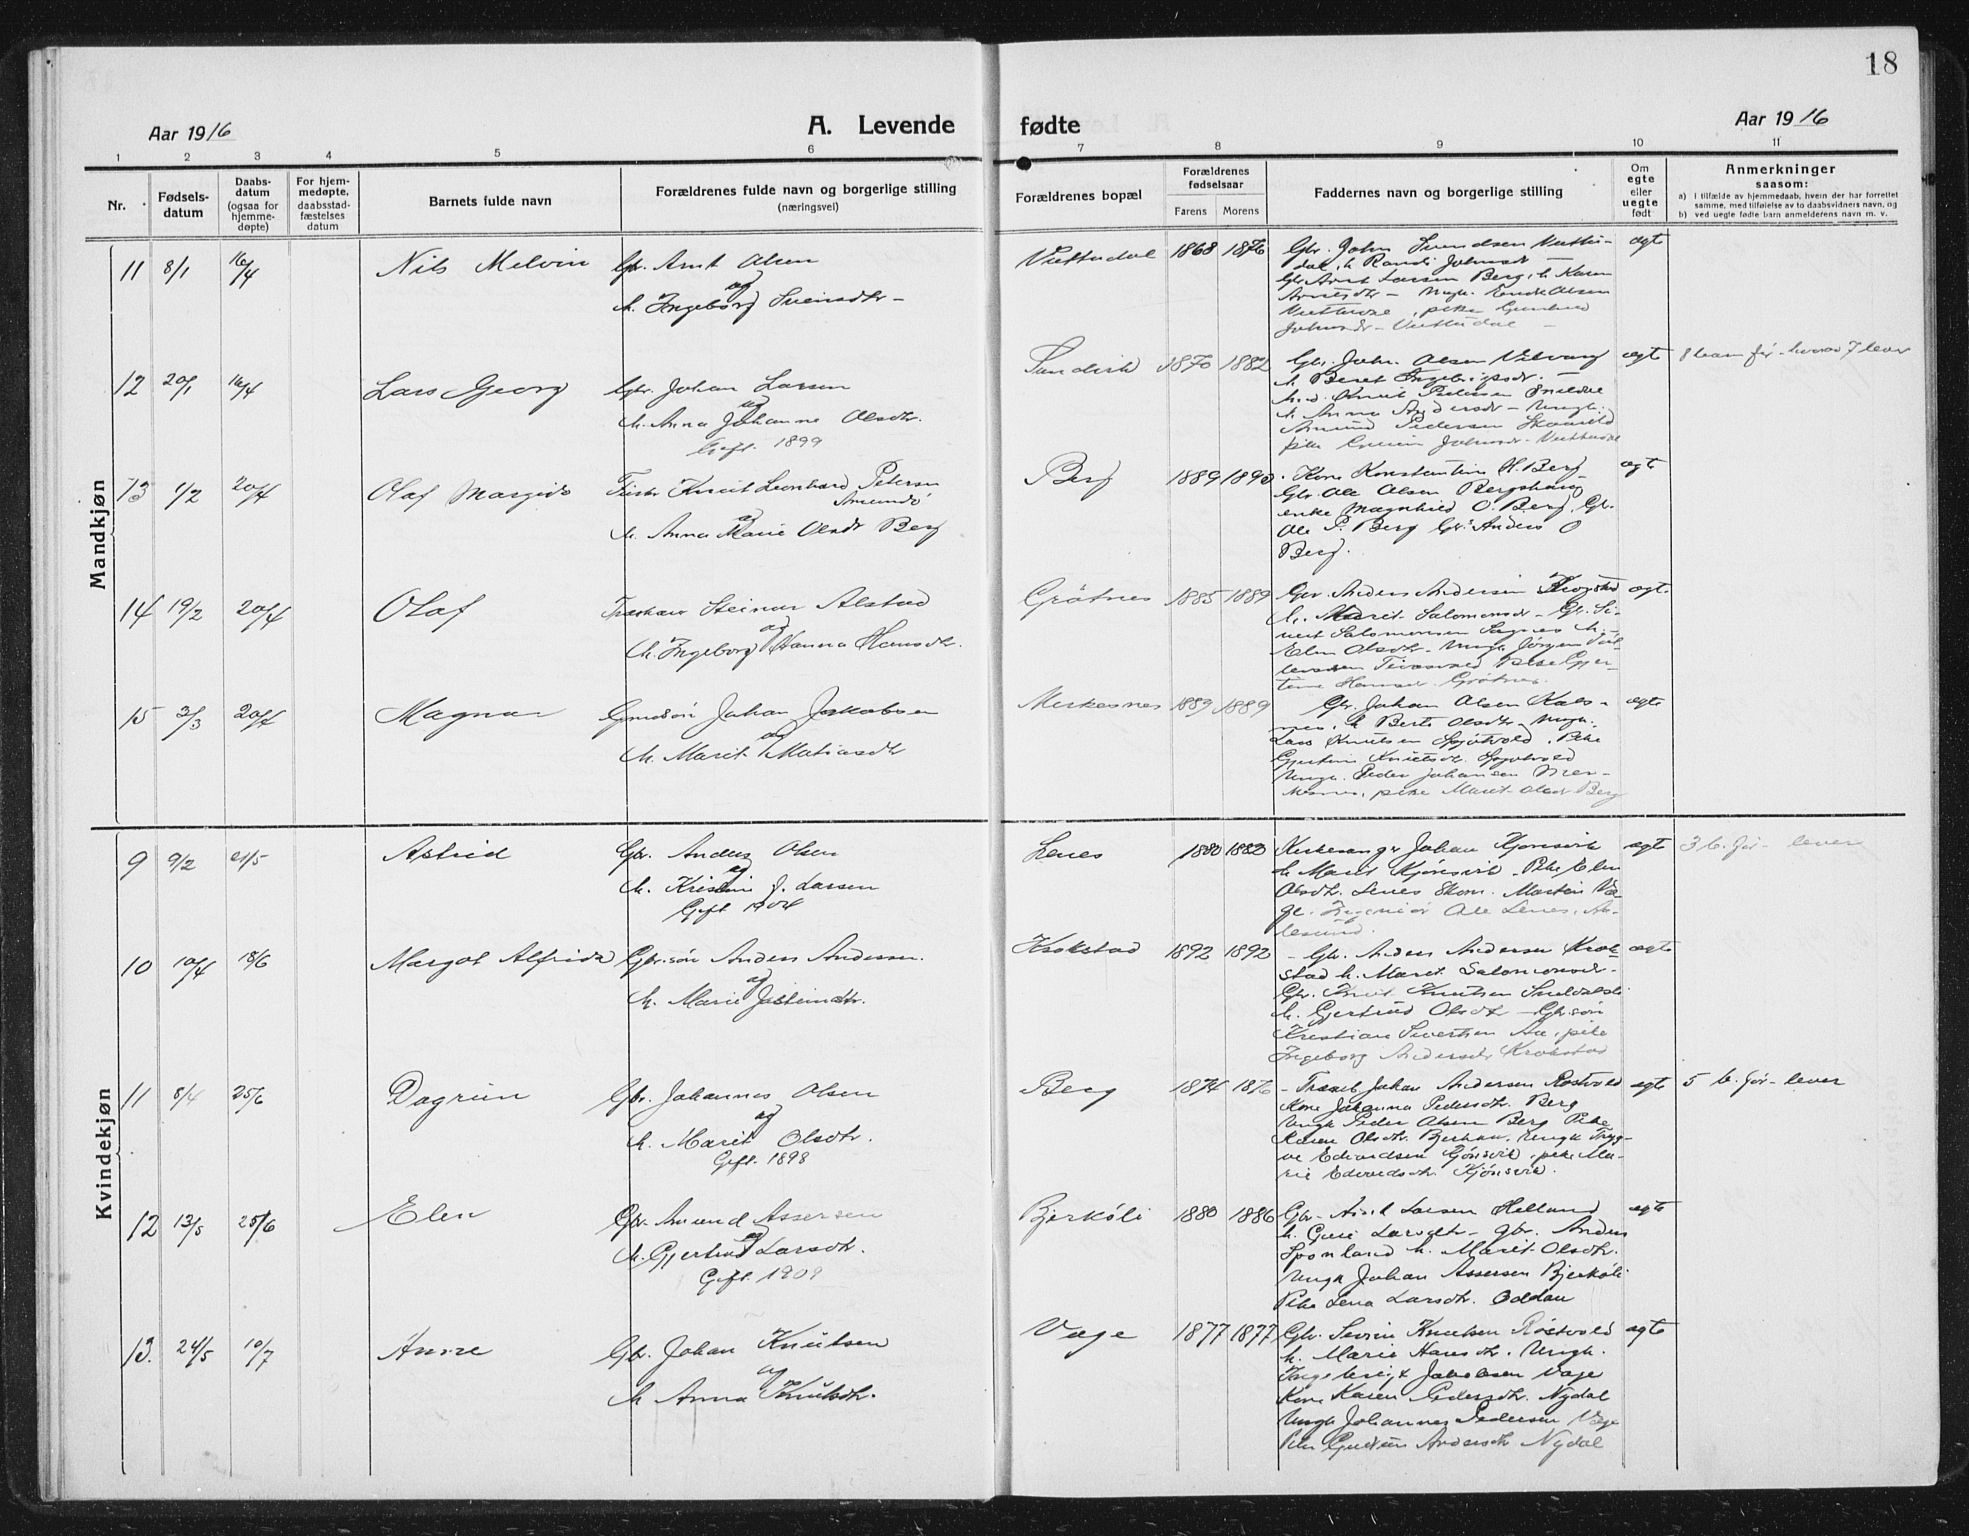 18
Aar 1916
A. Levende fødte
Aar 1916
1 2 3 4 5 6 7 8 9 10 11
Nr.
Fødsels-
datum
Daabs-
datum
(ogsaa for
hjemme-
døpte)
For hjem-
medøpte,
daabsstad-
fæstelses
datum
Barnets fulde navn
Forældrenes fulde navn og borgerlige stilling
(næringsvei)
Forældrenes bopæl
Forældrenes
fødselsaar
Farens Morens
Faddernes navn og borgerlige stilling
Om
egte
eller
uegte
født
Anmerkninger
saasom:
a) i tilfælde av hjemmedaab, hvem der har forrettet
samme, med tilføielse av to daabsvidners navn, og
b) ved uegte fødte barn anmelderens navn m. v.
Mandkjøn
11 8/1 16/4 Nils Melvin Gbr. Arnt Olsen
og
h. Ingeborg Svensdtr
Vuttudal 1868 1876
Gbr. John Svendsen Vuttu-
dal, h. Randi Johnsdr
Gbr. Arnt Larsen Berg, h. Karen
Arntsdtr - Ungk. Olsen
pike
Johnsdr - Vuttudal
egte
12 20/1 16/4 Lars Georg Gbr. Johan Larsen
og
h. Anna Johanne Olsdtr.
Gift. 1899
1870 1882
Gbr. John Olsen
h. Beret
Knut Petersen
h. Anna Andersdr - Ungk.
Amund Pedersen
pike Johnsdr -
egte 8 barn før - hvoraf 7 lever
13 1/2 20/4 Olaf Margido Knut Leonhard Petersen
Amundö
og
h. Anna Marie Olsdr Berg
Berg 1889 1890
Kone Konstantine H. Berg
Gbr. Ole Olsen Bergshaug
enke Magnhild O. Berg, Gbr.
Ole P. Berg Gbr. Anders O
Berg.
egte
14 19/2 20/4 Olaf Steinar Alstad
og
h. Ingeborg Hanna Hansdtr.
Grötnes 1885 1889
Gbr. Anders Andersen Krogstad
h. Marit Salomonsdr - Gbr. Si-
vert Salomonsen h. -
Elen Olsdtr - Ungk. Jörgen
Pike Gjer-
tine Grötnes.
egte
15 3/3 20/4 Magnar Johan Jakobsen
og
h. Marit Matiasdtr
Merkesnes 1889 1889
Gbr. Johan Olsen Kals-
nes, h. Berte Olsdtr - Ungk.
Lars Knutsen Spjötvold, Pike
Gjertine Knutsdtr. Spjötvold
Ungk. Peder Johansen Mer-
kesnes, pike Marit Olsdr Berg
egte
Kvindekjøn
9 9/2 21/5 Astrid Gbr. Anders Olsen
og
h. Kristine J. Larsen
Gift 1904
Lenes 1880 1880
Kirkesanger Johan Kjönsvik
h. Marit Kjönsvik - Pike Elen
Olsdtr. Lenes Skom. Martin Væ-
ge. Ingeniör Ole Lenes, Aa-
lesund.
egte 3 b. før - lever
10 10/4 18/6 Margot Alfrida Gbr.sön Anders Andersen.
og
h. Marie Josteinsdtr.
Krokstad 1892 1892
- Gbr. Anders Andersen Krok-
stad h. Marit Salomonsdr -
Gbr. Knut Knutsen Snildalsli
h. Gjertrud Olsdtr - Gbr.sön
Kristian Sivertsen Aa, pike
Ingeborg Andersdtr Krokstad
egte
11 8/4 25/6 Dagrun Gbr. Johannes Olsen
og
h. Marit Olsdtr.
Gift. 1898
Berg 1874 1876
Johan Andersen Rostvold
Kone Johanna Pedersdtr. Berg
Ungk Peder Olsen Berg Pike
Karen Olsdtr. Ungk Tryg-
ve Edvardsen Gjönsvik, pike Ma-
rie Edvardsdtr. Kjönsvik.
egte 5 b. før - lever
12 13/5 25/6 Elen Gbr. Amund Assersen
og
h. Gjertrud Larsdtr.
Gift. 1909
Bjerköli 1880 1886
Gbr. Arnt Larsen Helland
h. Guri Larsdtr - gbr. Anders
Spönland h. Marit Olsdtr.
Ungk Johan Assersen Bjerköli
Pike Lena Larsdtr. Oddan
egte
13. 24/5 10/7 Anne Gbr. Johan Knutsen
og
h. Anna Knutsdtr.
Væge 1877 1877
Gbr. Sevrin Knutsen Röstvold
h. Marie Hansdtr. Ungk.
Ingebrigt Jakobsen Væge
Kone Karen Pedersdtr. Nydal
Ungk Johannes Pedersen Væge
Pike Gudrun Andersdtr Nydal
egte